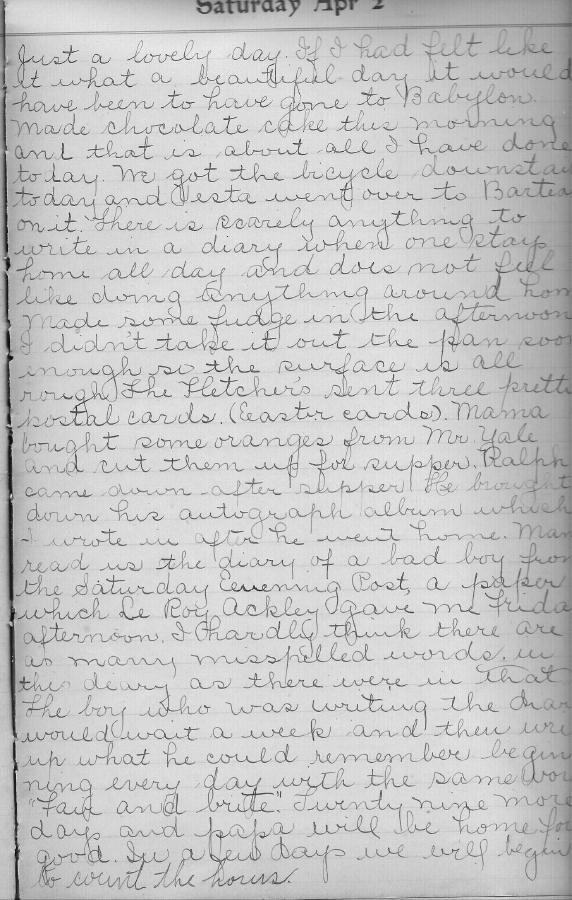 Saturday Apr 2
Just a lovely day. If I had felt like
it what a beautiful day it would
have been to have gone to Babylon.
Made chocolate cake this morning
and that is about all I have done
today. We got the bicycle downstai
today and Vesta went over to
on it. There is scarely anything to
write in a diary when one stays
home all day and does not feel
like doing anything around hom
Made some fudge in the afternoon
I didn't take it out the pan soon
enough so the surface is all
rough. The Fletcher's sent three prett
postal cards. (Easter cards). Mama
bought some oranges from Mr. Yale
and cut them up for supper. Ralph
came down after supper. He brought
down his autograph album which
I wrote in after he went home. Mam
read us the diary of a bad boy from
the Saturday Evening Post, a paper
which Le Roy Ackley gave me Frida
afternoon. I hardly think there are
as many misspelled words in
this deary as there were in that
The boy who was writing the diar
would wait a week and then wri
up what he could remember begin
ning every day with the same wor
"Fair and brite". Twenty nine more
days and papa will be home for
good. In a few days we will begin
to count the hours.